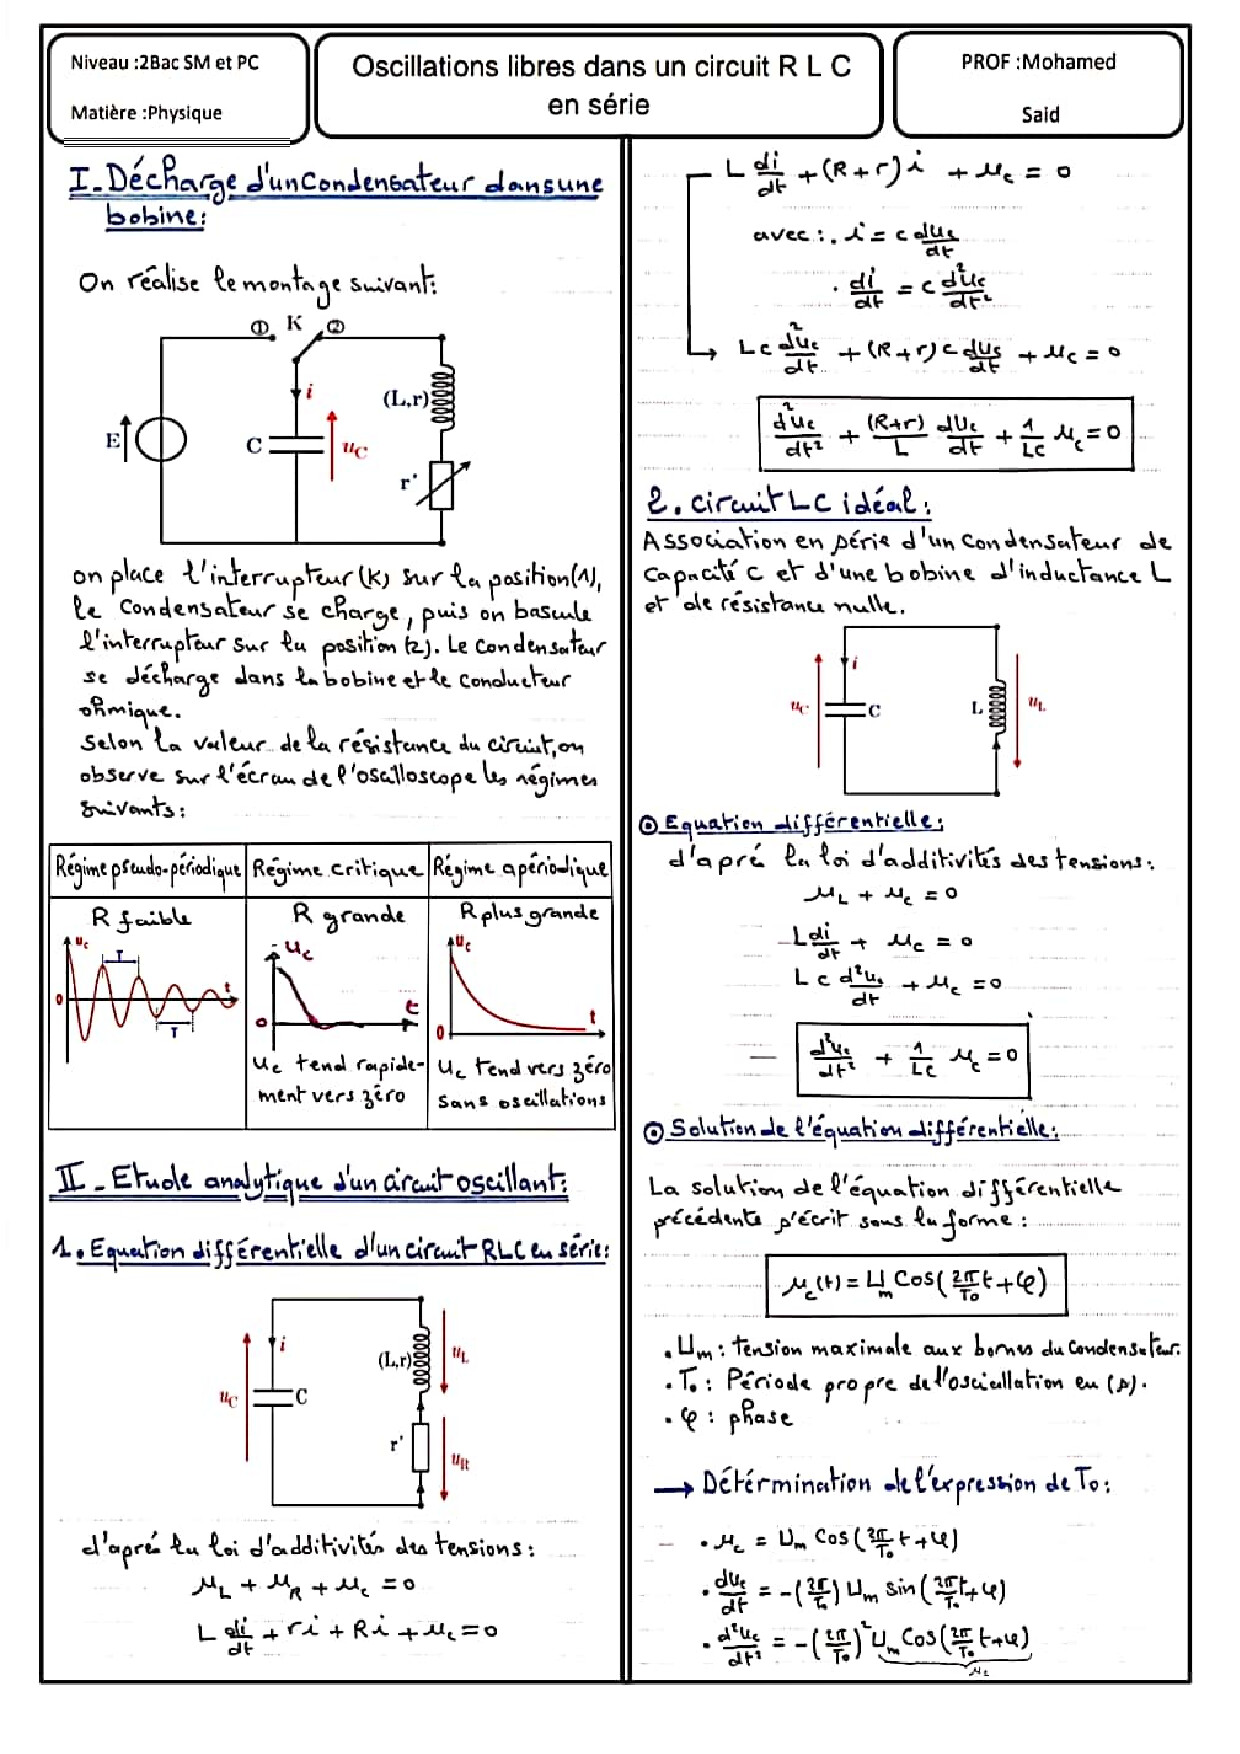 Niveau :2Bac SM et PC
Matière :Physique
Oscillations libres dans un circuit R L C
en série
PROF :Mohamed
Said
I. Décharge d'un Condensateur dans une
bobine:
On réalise le montage suivant:
① K ②
i
(L,r)
E
C
uC
r'
on place l'interrupteur (K) sur la position (1),
le condensateur se charge, puis on bascule
l'interrupteur sur la position (2). Le condensateur
se décharge dans la bobine et le conducteur
ohmique.
Selon la valeur de la résistance du circuit, on
observe sur l'écran de l'oscilloscope les régimes
suivants:
Régime pseudo-périodique | Régime critique | Régime apériodique
R faible | R grande | R plus grande
uc T t 0 T
uc t 0
uc t 0
Uc tend rapide-
ment vers zéro
Uc tend vers zéro
sans oscillations
II - Etude analytique d'un circuit oscillant:
1. Equation différentielle d'un circuit RLC en série:
i
(L,r)
uL
uC
C
r'
uR
d'aprés la loi d'additivités des tensions:
u_L + u_R + u_c = 0
L di/dt + ri + Ri + u_c = 0
L di/dt + (R+r) i + u_c = 0
avec :. i = c dUc/dt
. di/dt = c d²Uc/dt²
→ Lc d²Uc/dt² + (R+r) c dUc/dt + u_c = 0
d²Uc/dt² + (R+r)/L dUc/dt + 1/Lc u_c = 0
2. circuit LC idéal:
Association en série d'un condensateur de
capacité c et d'une bobine d'inductance L
et de résistance nulle.
i
uC
C
L
uL
⊙ Equation différentielle:
d'apré la loi d'additivités des tensions:
u_L + u_c = 0
L di/dt + u_c = 0
Lc d²Uc/dt + u_c = 0
d²Uc/dt² + 1/Lc u_c = 0
⊙ Solution de l'équation différentielle:
La solution de l'équation différentielle
précédente s'écrit sous la forme:
u_c(t) = U_m Cos(2π/T₀ t + φ)
. Um : tension maximale aux bornes du condensateur.
. T₀ : Période propre de l'osciallation en (s).
. φ : phase
→ Détérmination de l'expression de T₀:
. u_c = U_m Cos(2π/T₀ t + φ)
. dUc/dt = -(2π/T₀) U_m sin(2π/T₀ t + φ)
. d²Uc/dt² = -(2π/T₀)² U_m Cos(2π/T₀ t + φ)
u_c